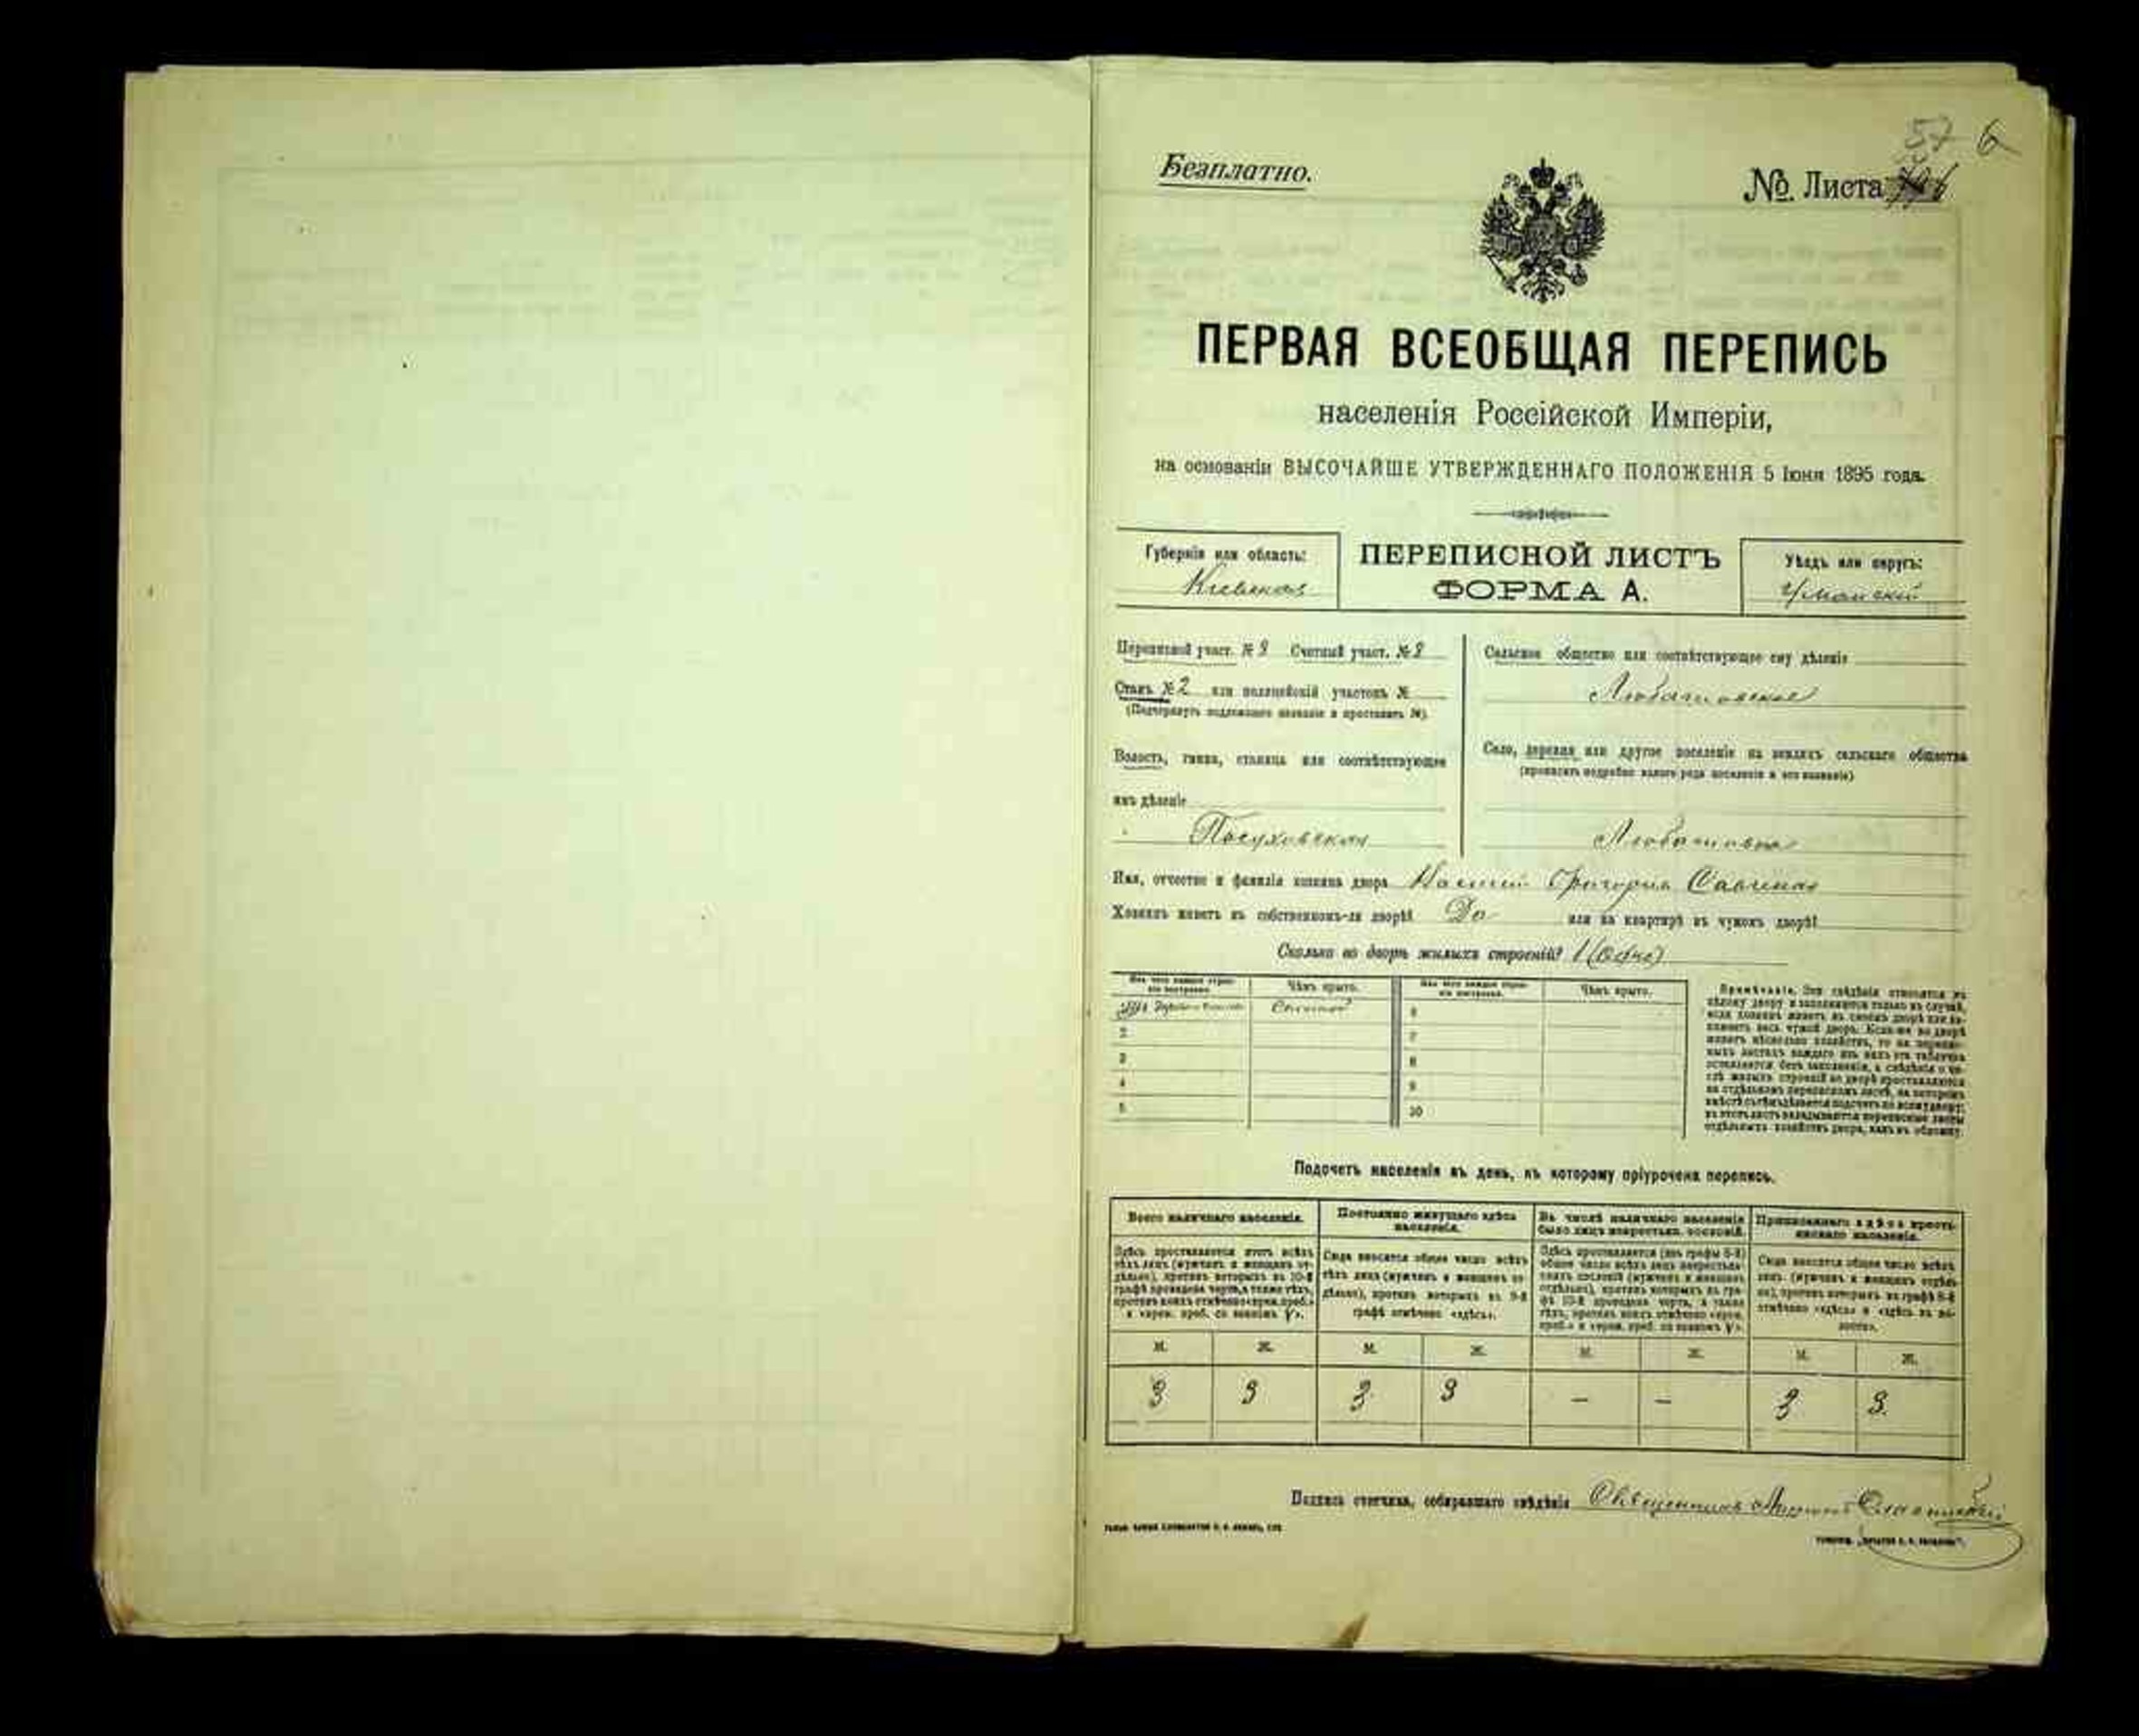 57 6
Безплатно.
№ Листа
ПЕРВАЯ ВСЕОБЩАЯ ПЕРЕПИСЬ
населенія Россійской Имперіи,
на основаніи ВЫСОЧАЙШЕ УТВЕРЖДЕННАГО ПОЛОЖЕНІЯ 5 Іюня 1895 года.
Губернія или область:
Кіевская
ПЕРЕПИСНОЙ ЛИСТЪ
ФОРМА А.
Уѣздъ или округъ:
Уманскій
Переписной участ. № 8 Счетный участ. № 8
Станъ № 2 или полицейскій участокъ №
(Подчеркнуть подлежащее названіе и проставить №).
Волость, гмина, станица или соотвѣтствующее
имъ дѣленіе
Посуховская
Сельское общество или соотвѣтствующее ему дѣленіе
Село, деревня или другое поселеніе на земляхъ сельскаго общества
(прописать подробно какого рода поселеніе и его названіе)
Имя, отчество и фамилія хозяина двора
Хозяинъ живетъ въ собственномъ-ли дворѣ? Да или на квартирѣ въ чужомъ дворѣ?
Сколько во дворѣ жилыхъ строеній? 1 (одно)
Изъ чего каждое строе-
ніе построено.
Чѣмъ крыто.
Изъ чего каждое строе-
ніе построено.
Чѣмъ крыто.
1 Соломой 6
2 7
3 8
4 9
5 10
Примѣчаніе. Эти свѣдѣнія относятся къ
цѣлому двору и заполняются только въ случаѣ,
если хозяинъ живетъ въ своемъ дворѣ или за-
нимаетъ весь чужой дворъ. Если-же во дворѣ
живетъ нѣсколько хозяйствъ, то на перепис-
ныхъ листахъ каждаго изъ нихъ эта табличка
оставляется безъ заполненія, а свѣдѣнія о чи-
слѣ жилыхъ строеній во дворѣ проставляются
на отдѣльномъ переписномъ листѣ, на которомъ
вмѣстѣ съ тѣмъ дѣлается подсчетъ по всему двору;
въ этотъ листъ вкладываются переписные листы
отдѣльныхъ хозяйствъ двора, какъ въ обложку.
Подсчетъ населенія въ день, къ которому пріурочена перепись.
Всего наличнаго населенія.
Здѣсь проставляется итогъ всѣхъ
тѣхъ лицъ (мужчинъ и женщинъ от-
дѣльно), противъ которыхъ въ 10-й
графѣ проведена черта, а также тѣхъ,
противъ коихъ отмѣчено «врем. преб.»
и «врем. преб. со знакомъ V».
Постоянно живущаго здѣсь
населенія.
Сюда вносится общее число всѣхъ
тѣхъ лицъ (мужчинъ и женщинъ от-
дѣльно), противъ которыхъ въ 9-й
графѣ отмѣчено «здѣсь».
Въ числѣ наличнаго населенія
было лицъ некрестьян. сословій.
Здѣсь проставляется (изъ графы 8-й)
общее число всѣхъ лицъ некрестьян-
скихъ сословій (мужчинъ и женщинъ
отдѣльно), противъ которыхъ въ гра-
фѣ 10-й проведена черта, а также
тѣхъ, противъ коихъ отмѣчено «врем.
преб.» и «врем. преб. со знакомъ V».
Приписаннаго здѣсь кресть-
янскаго населенія.
Сюда вносится общее число всѣхъ
лицъ (мужчинъ и женщинъ отдѣль-
но), противъ которыхъ въ графѣ 8-й
отмѣчено «здѣсь» и «здѣсь въ во-
лости».
М. Ж. М. Ж. М. Ж. М. Ж.
3 3 3 3 — — 3 3
Подпись счетчика, собиравшаго свѣдѣнія Священникъ